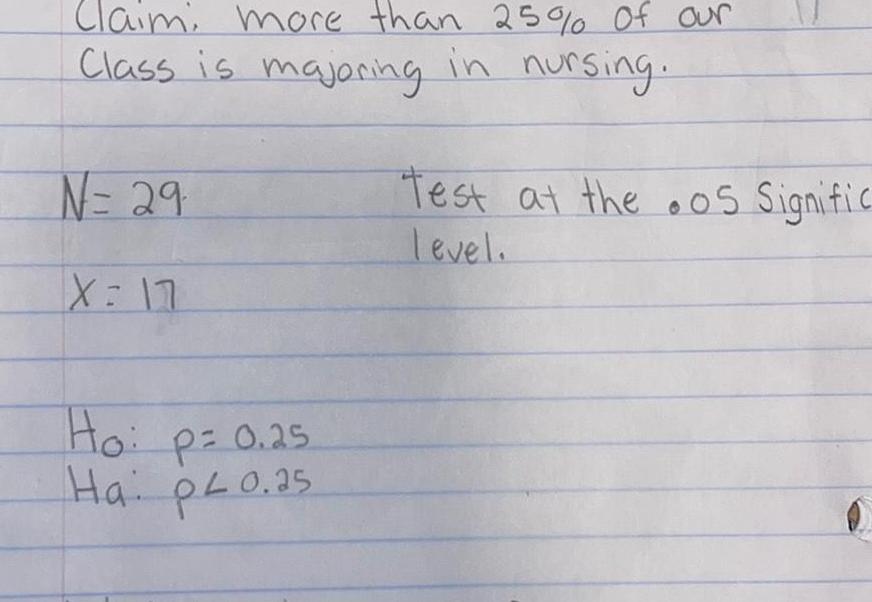 Claim: more than 25% of our
Class is majoring in nursing.
N= 29
Test at the .05 Signific
level.
X = 17
Ho: p= 0.25
Ha: p< 0.25